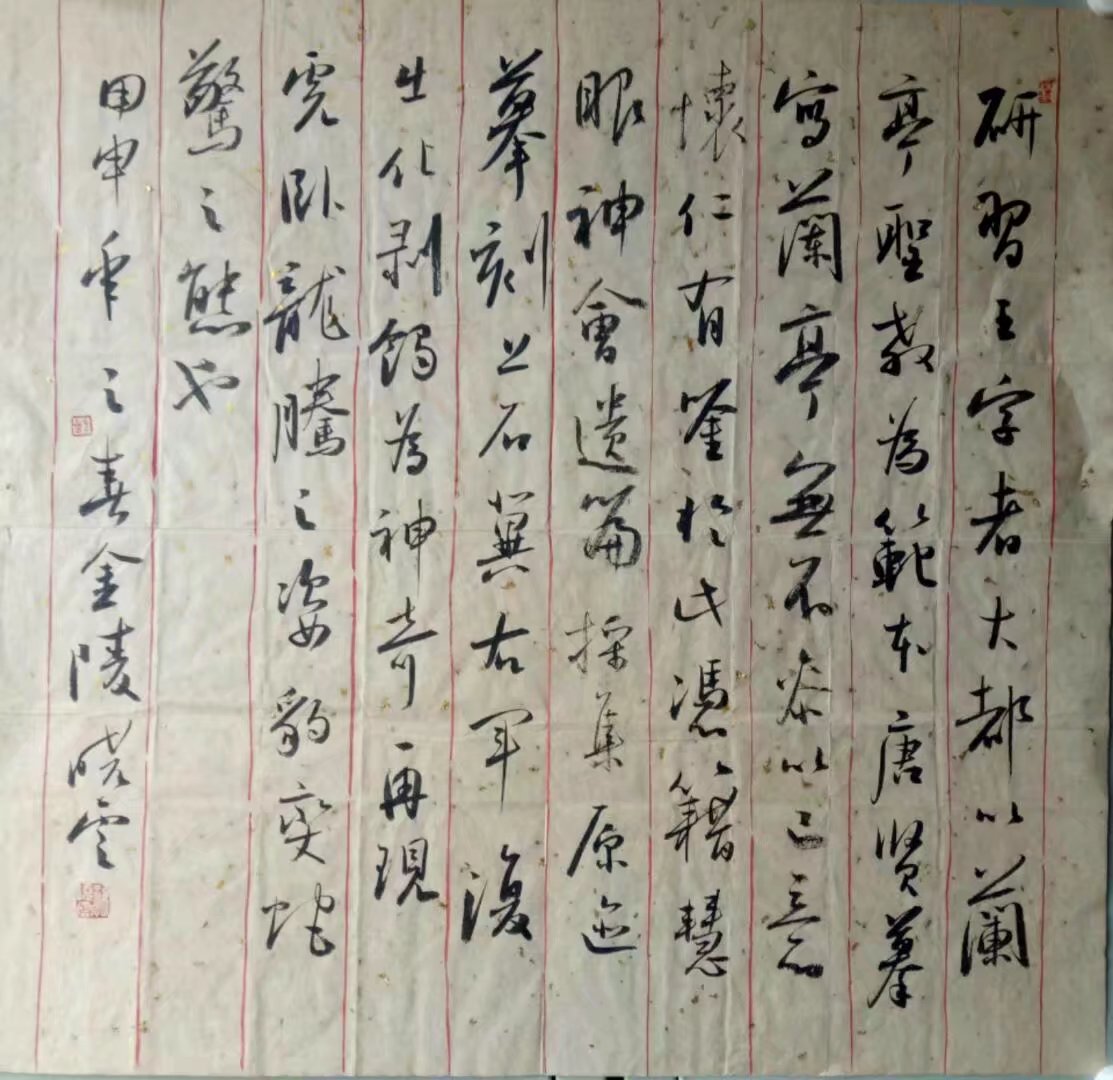 研習王字者大都以蘭
亭聖教為範本唐賢摹
寫蘭亭無不參以己意
懷仁有鑒於此憑籍慧
眼神會遺篇採集原迹
摹刻上石冀右軍復
生化剥蝕為神奇再現
虎卧龍騰之姿豹奕蛇
驚之態也
甲申年之春金陵晓雲